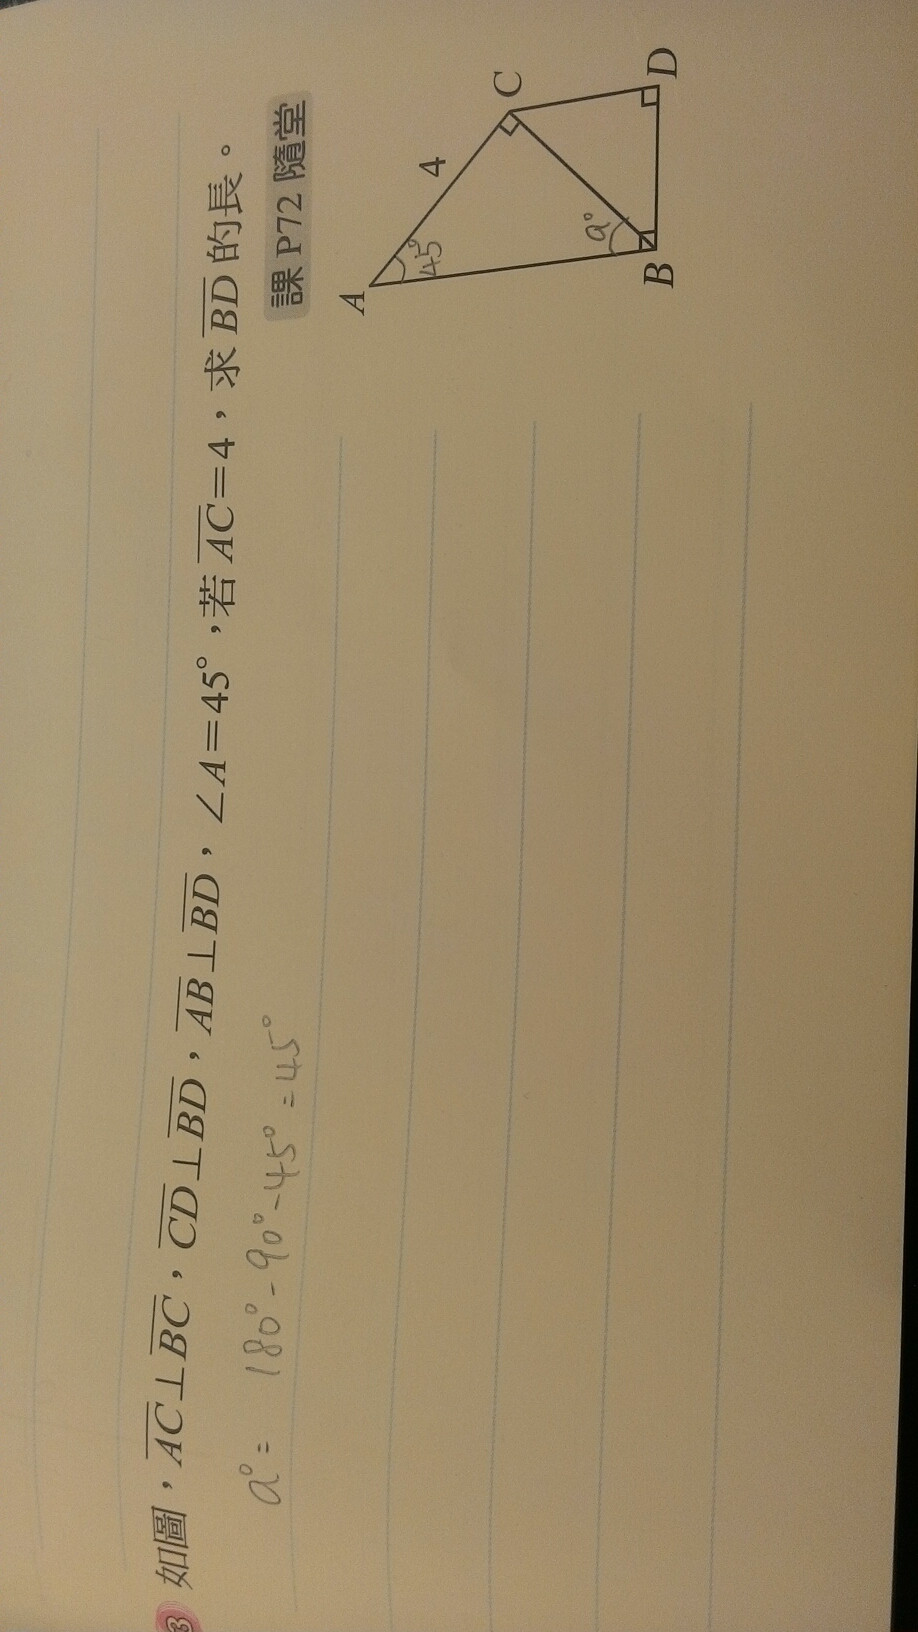 3 如圖，AC⊥BC，CD⊥BD，AB⊥BD，∠A=45°，若AC=4，求BD的長。
課P72隨堂
a°= 180°-90°-45°=45°
A
4
C
45°
a°
B
D